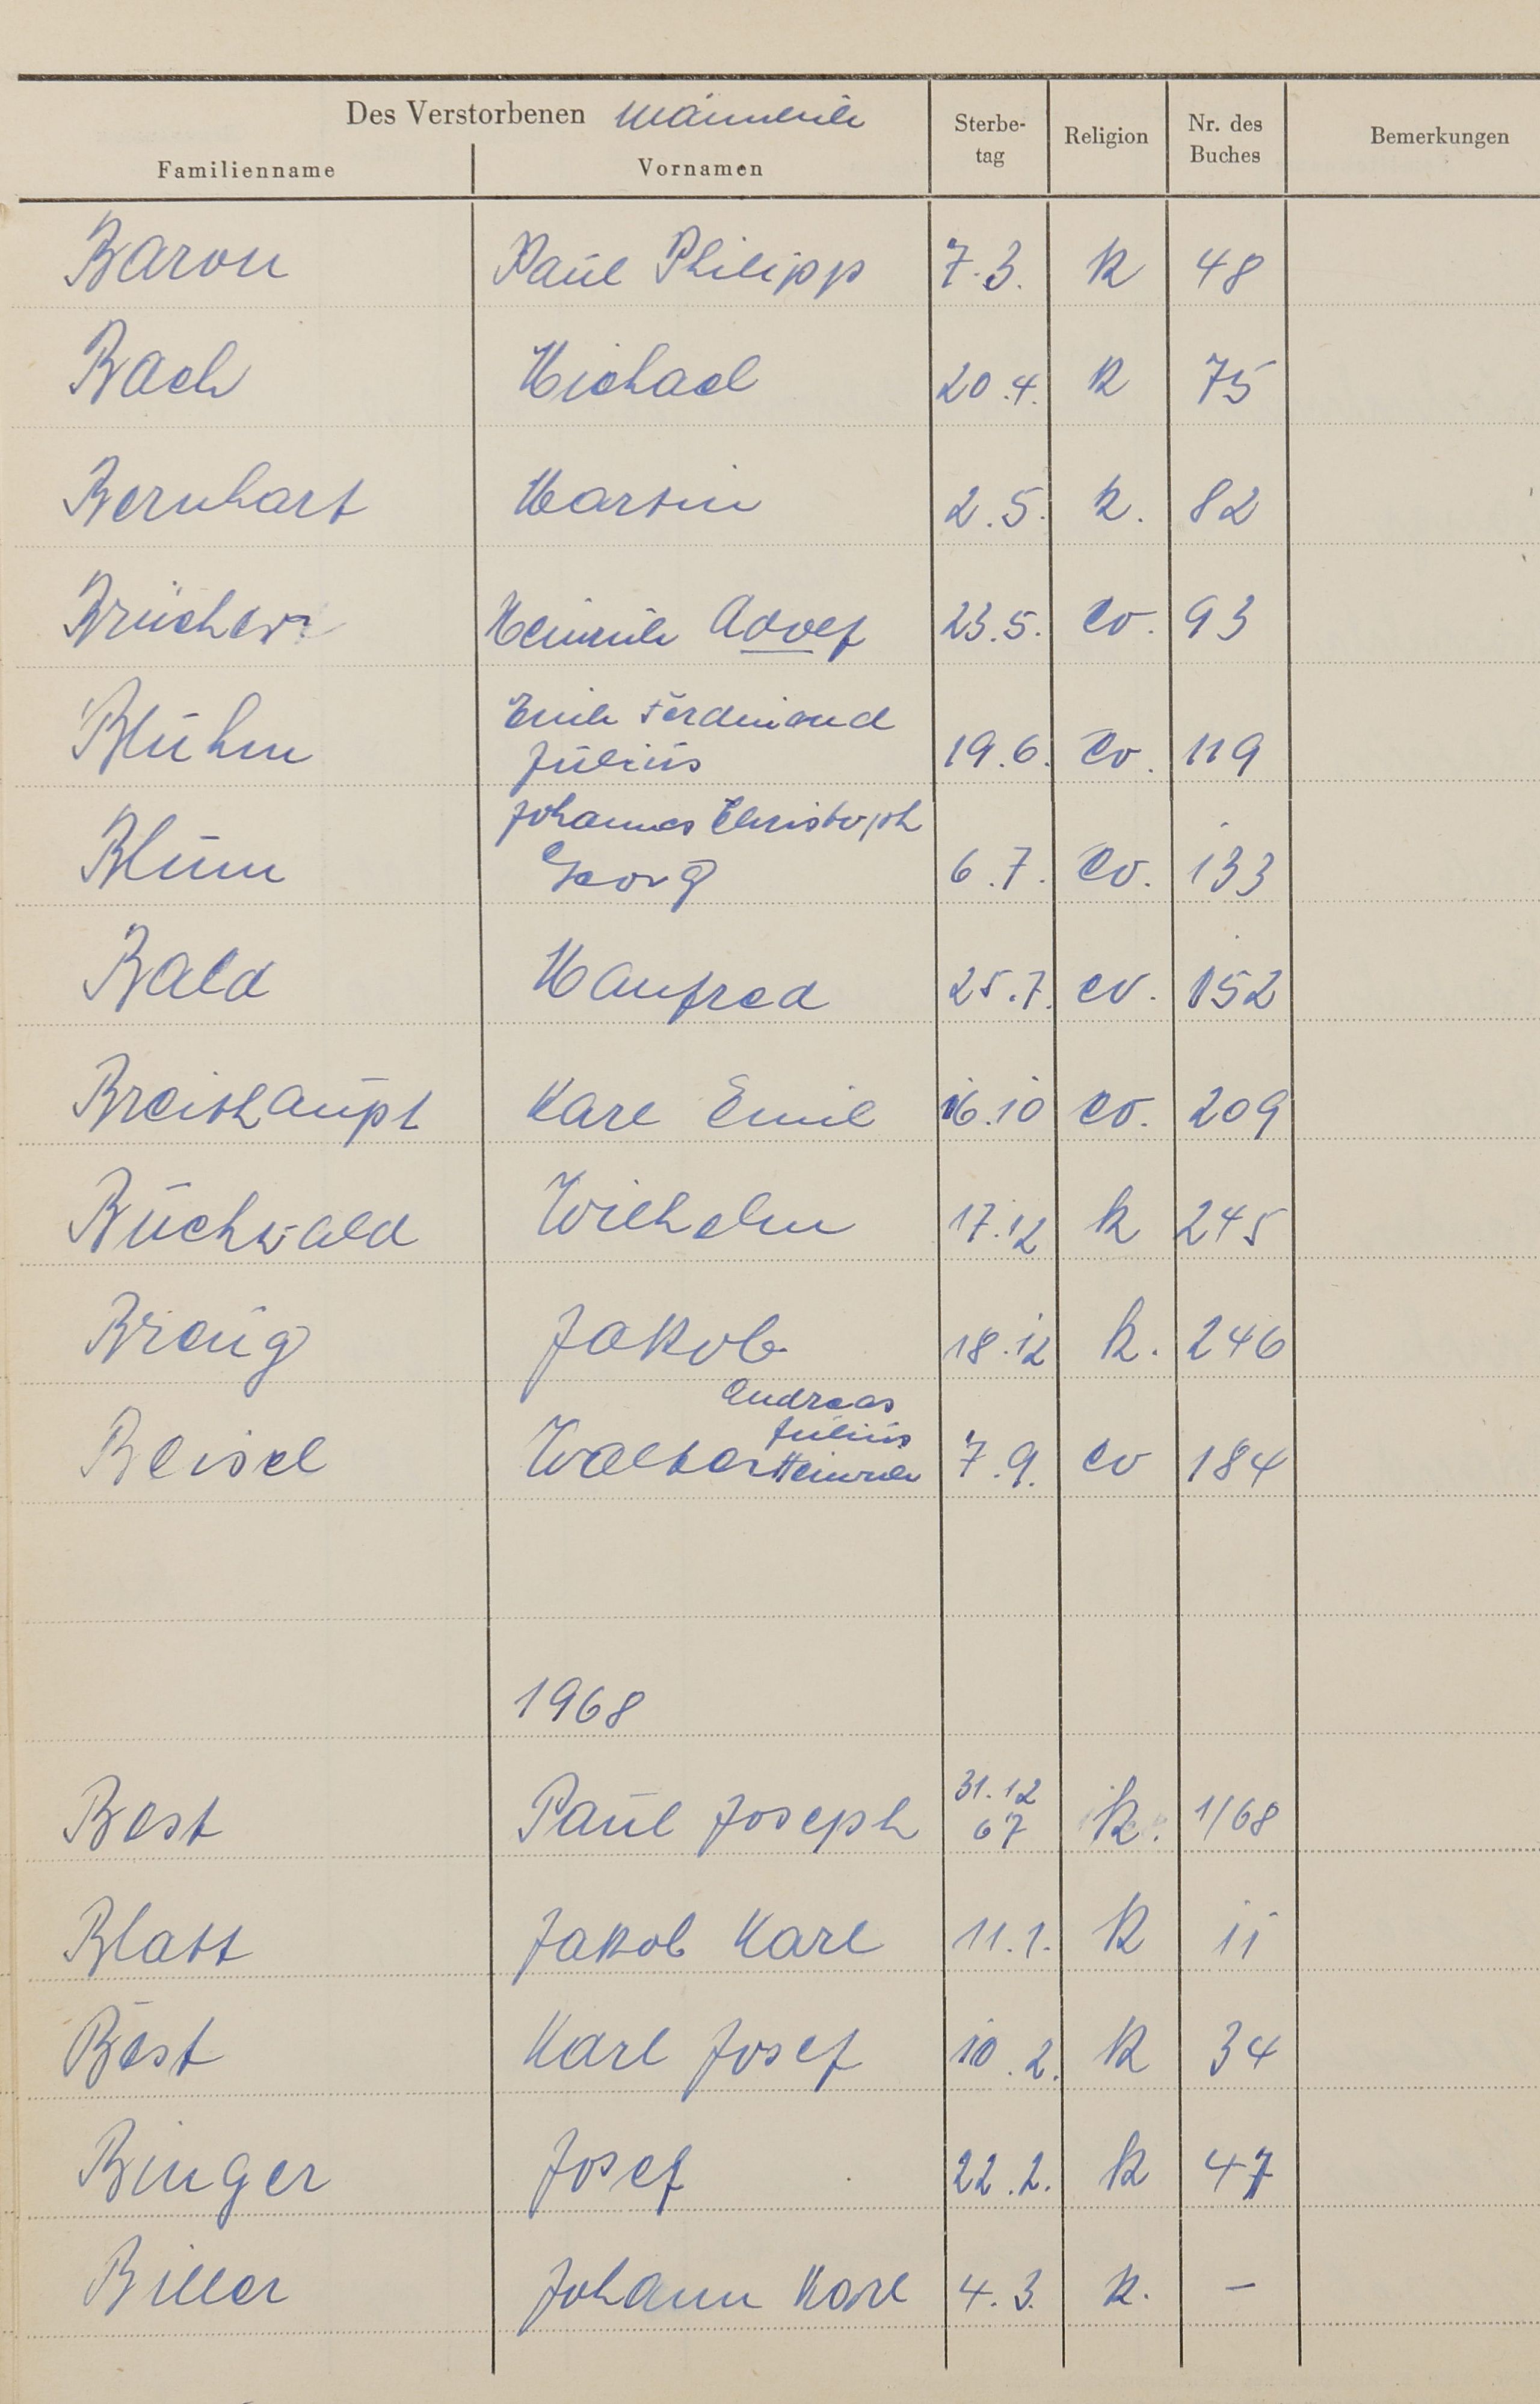 Des Verstorbenen Männlich
Familienname Vornamen Sterbe-tag Religion Nr. des Buches Bemerkungen
Baron Paul Philipp 7.3. k 48
Bach Michael 20.4. k 75
Bernhart Martin 2.5. k. 82
Brücher Heinrich Adolf 23.5. ev. 93
Emil Ferdinand
Blühm Julius 19.6. ev. 119
Johannes Christoph
Blum Georg 6.7. ev. 133
Bald Manfred 25.7. ev. 152
Breithaupt Karl Emil 16.10 ev. 209
Buchwald Wilhelm 17.12 k 245
Braug Jakob 18.12 k. 246
Andreas
Julius
Beisel Walter Heinrich 7.9. ev 184
1968
31.12
Best Paul Joseph 67 k. 1/68
Blatt Jakob Karl 11.1. k 11
Best Karl Josef 10.2. k 34
Binger Josef 22.2. k 47
Biller Johann Karl 4.3. k. –